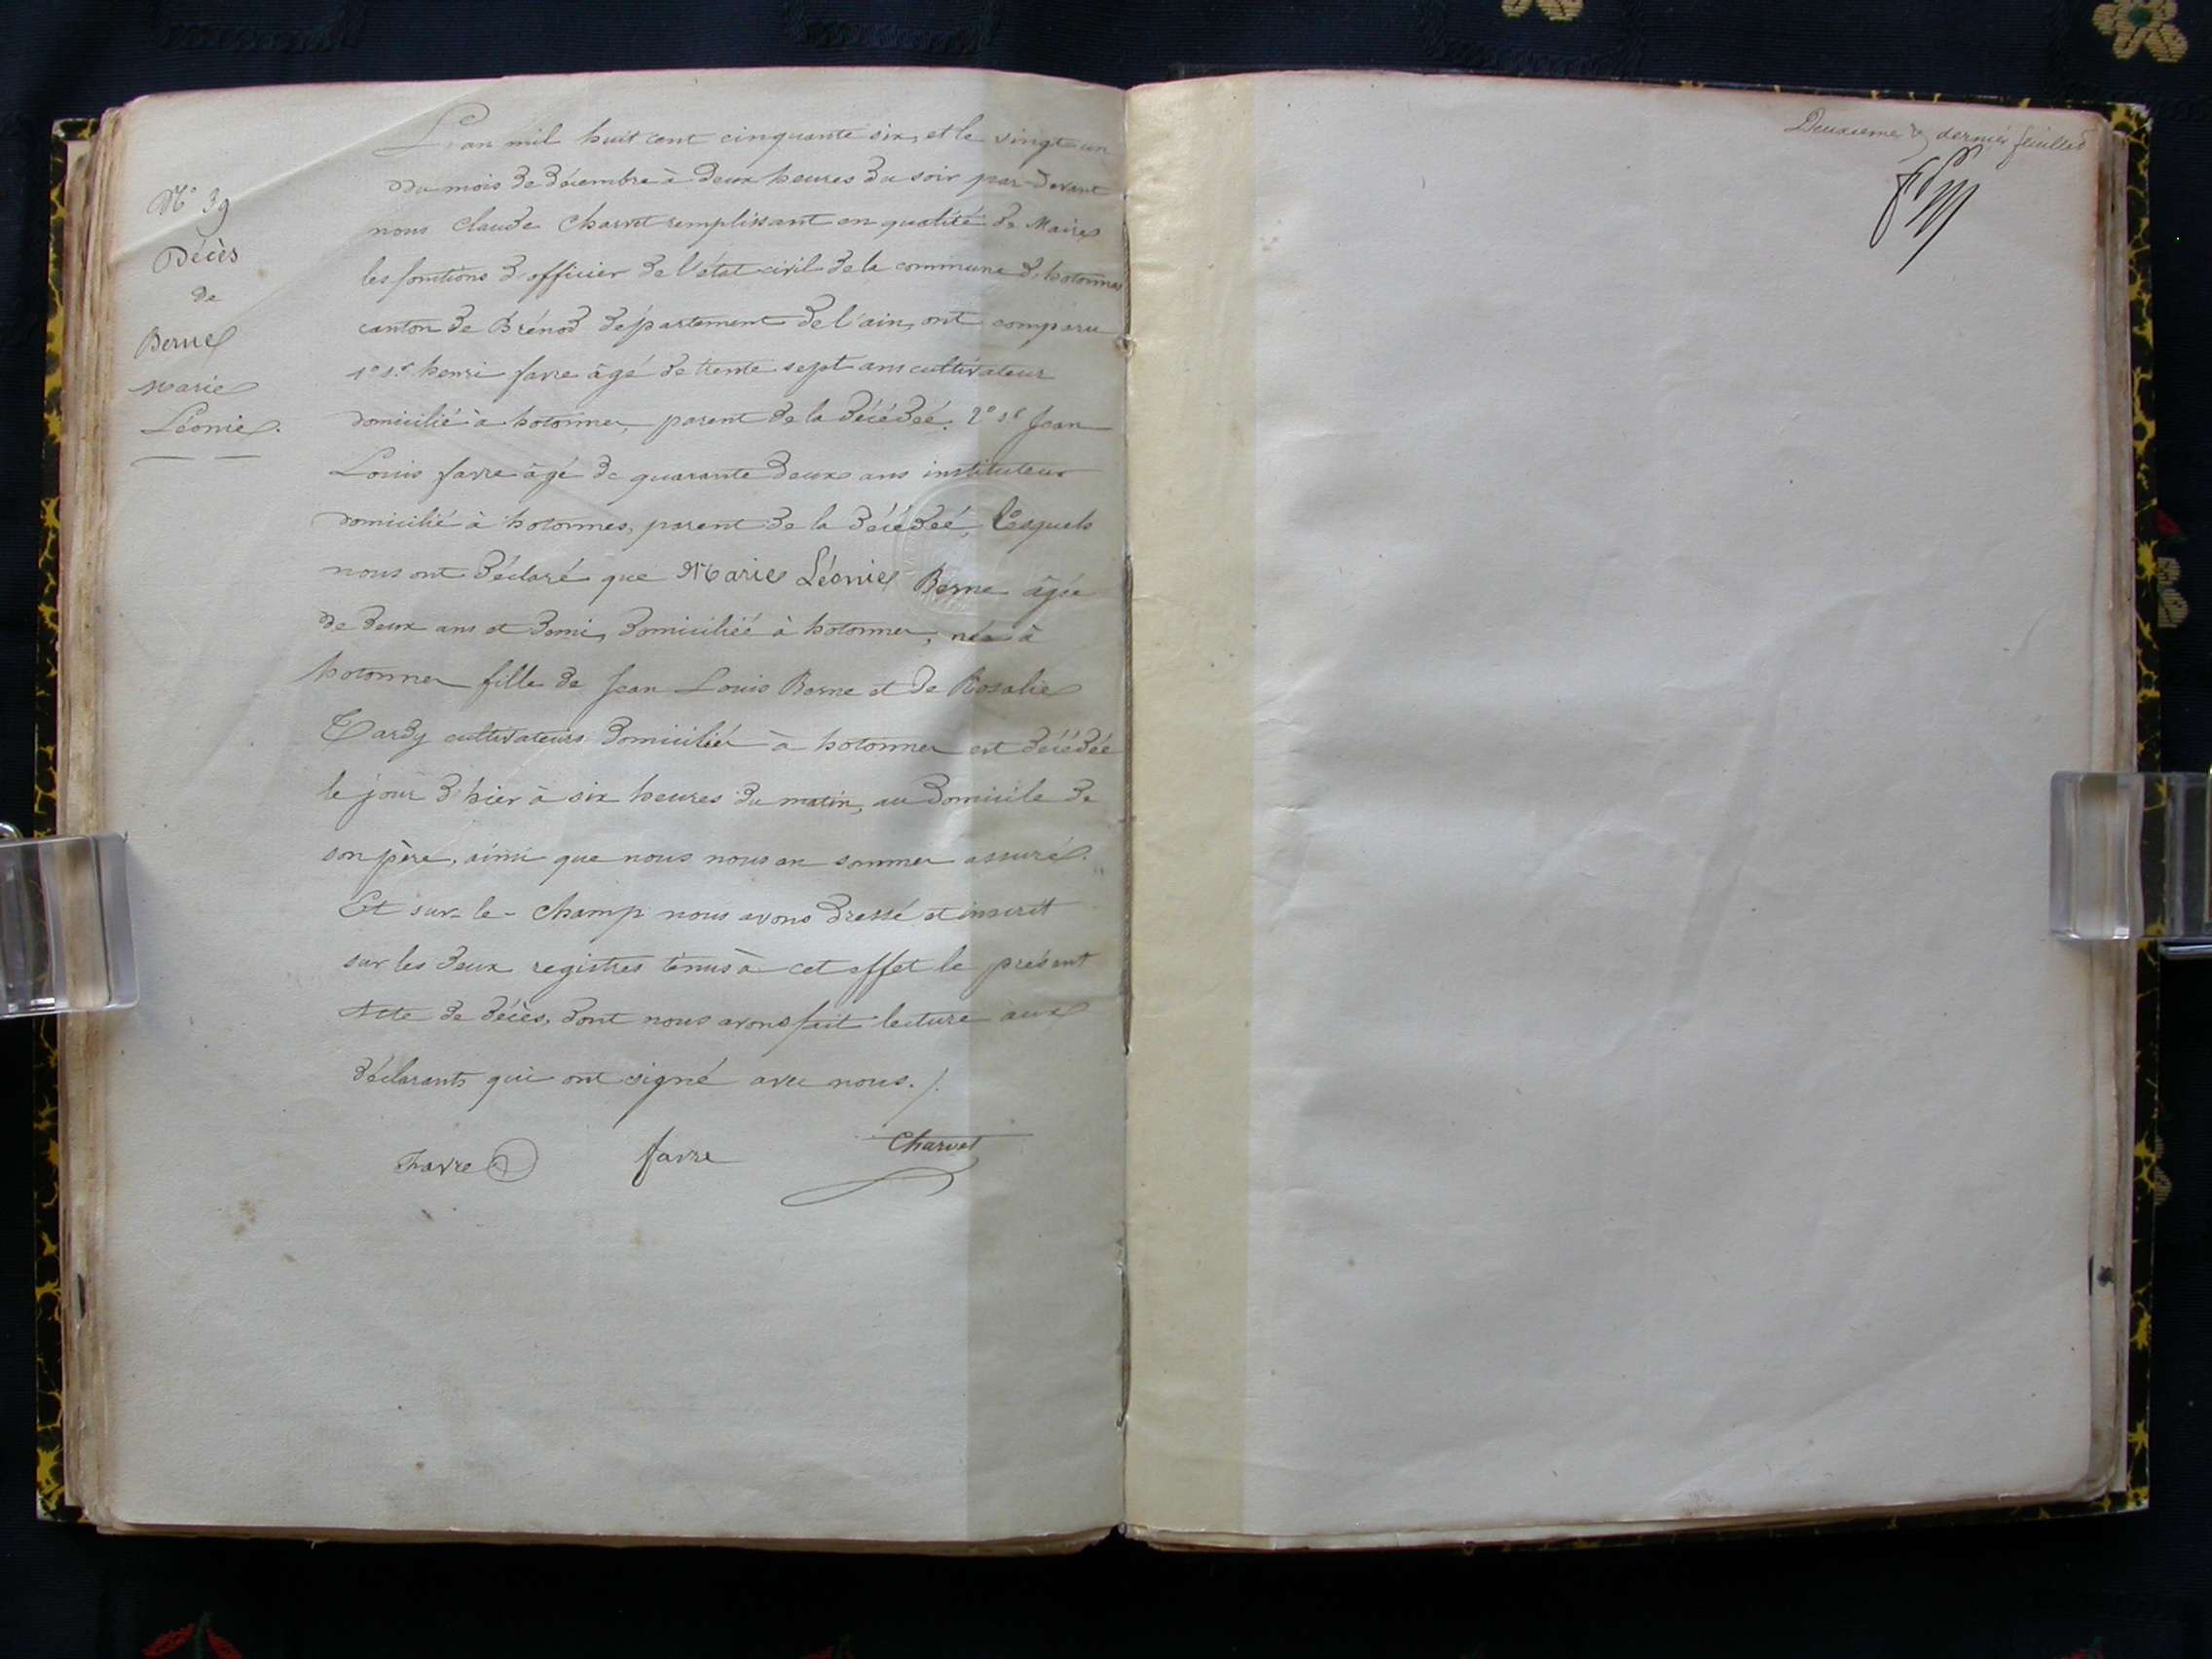 N° 39
Décès
de
Berne
Marie
Léonie.
L'an mil huit cent cinquante six, et le vingt un
du mois de décembre à deux heures du soir par-devant
nous Claude Charvet remplissant en qualité de Maire
les fontions d'officier de l'état civil de la commune d'hotonnes
canton de Brénod département de l'ain, ont comparu
1° sr. henri favre âgé de trente sept ans cultivateur
domicilié à hotonnes, parent de la décédée. 2° sr Jean
Louis favre âgé de quarante deux ans instituteur
domicilié à hotonnes, parent de la décédée, Lesquels
nous ont déclaré que Marie Léonie Berne âgée
de deux ans et demi, domiciliée à hotonnes, née à
hotonnes fille de Jean Louis Berne et de Rosalie
Tardy cultivateurs domiciliés à hotonnes est décédée
le jour d'hier à six heures du matin, au domicile de
son père, ainsi que nous nous en sommes assuré.
Et sur-le-champ nous avons dressé et inscrit
sur les deux registres tenus à cet effet le présent
Acte de décès, dont nous avons fait lecture aux
déclarants qui ont signé avec nous./.
Favre favre Charvet
Deuxieme & dernier feuillet